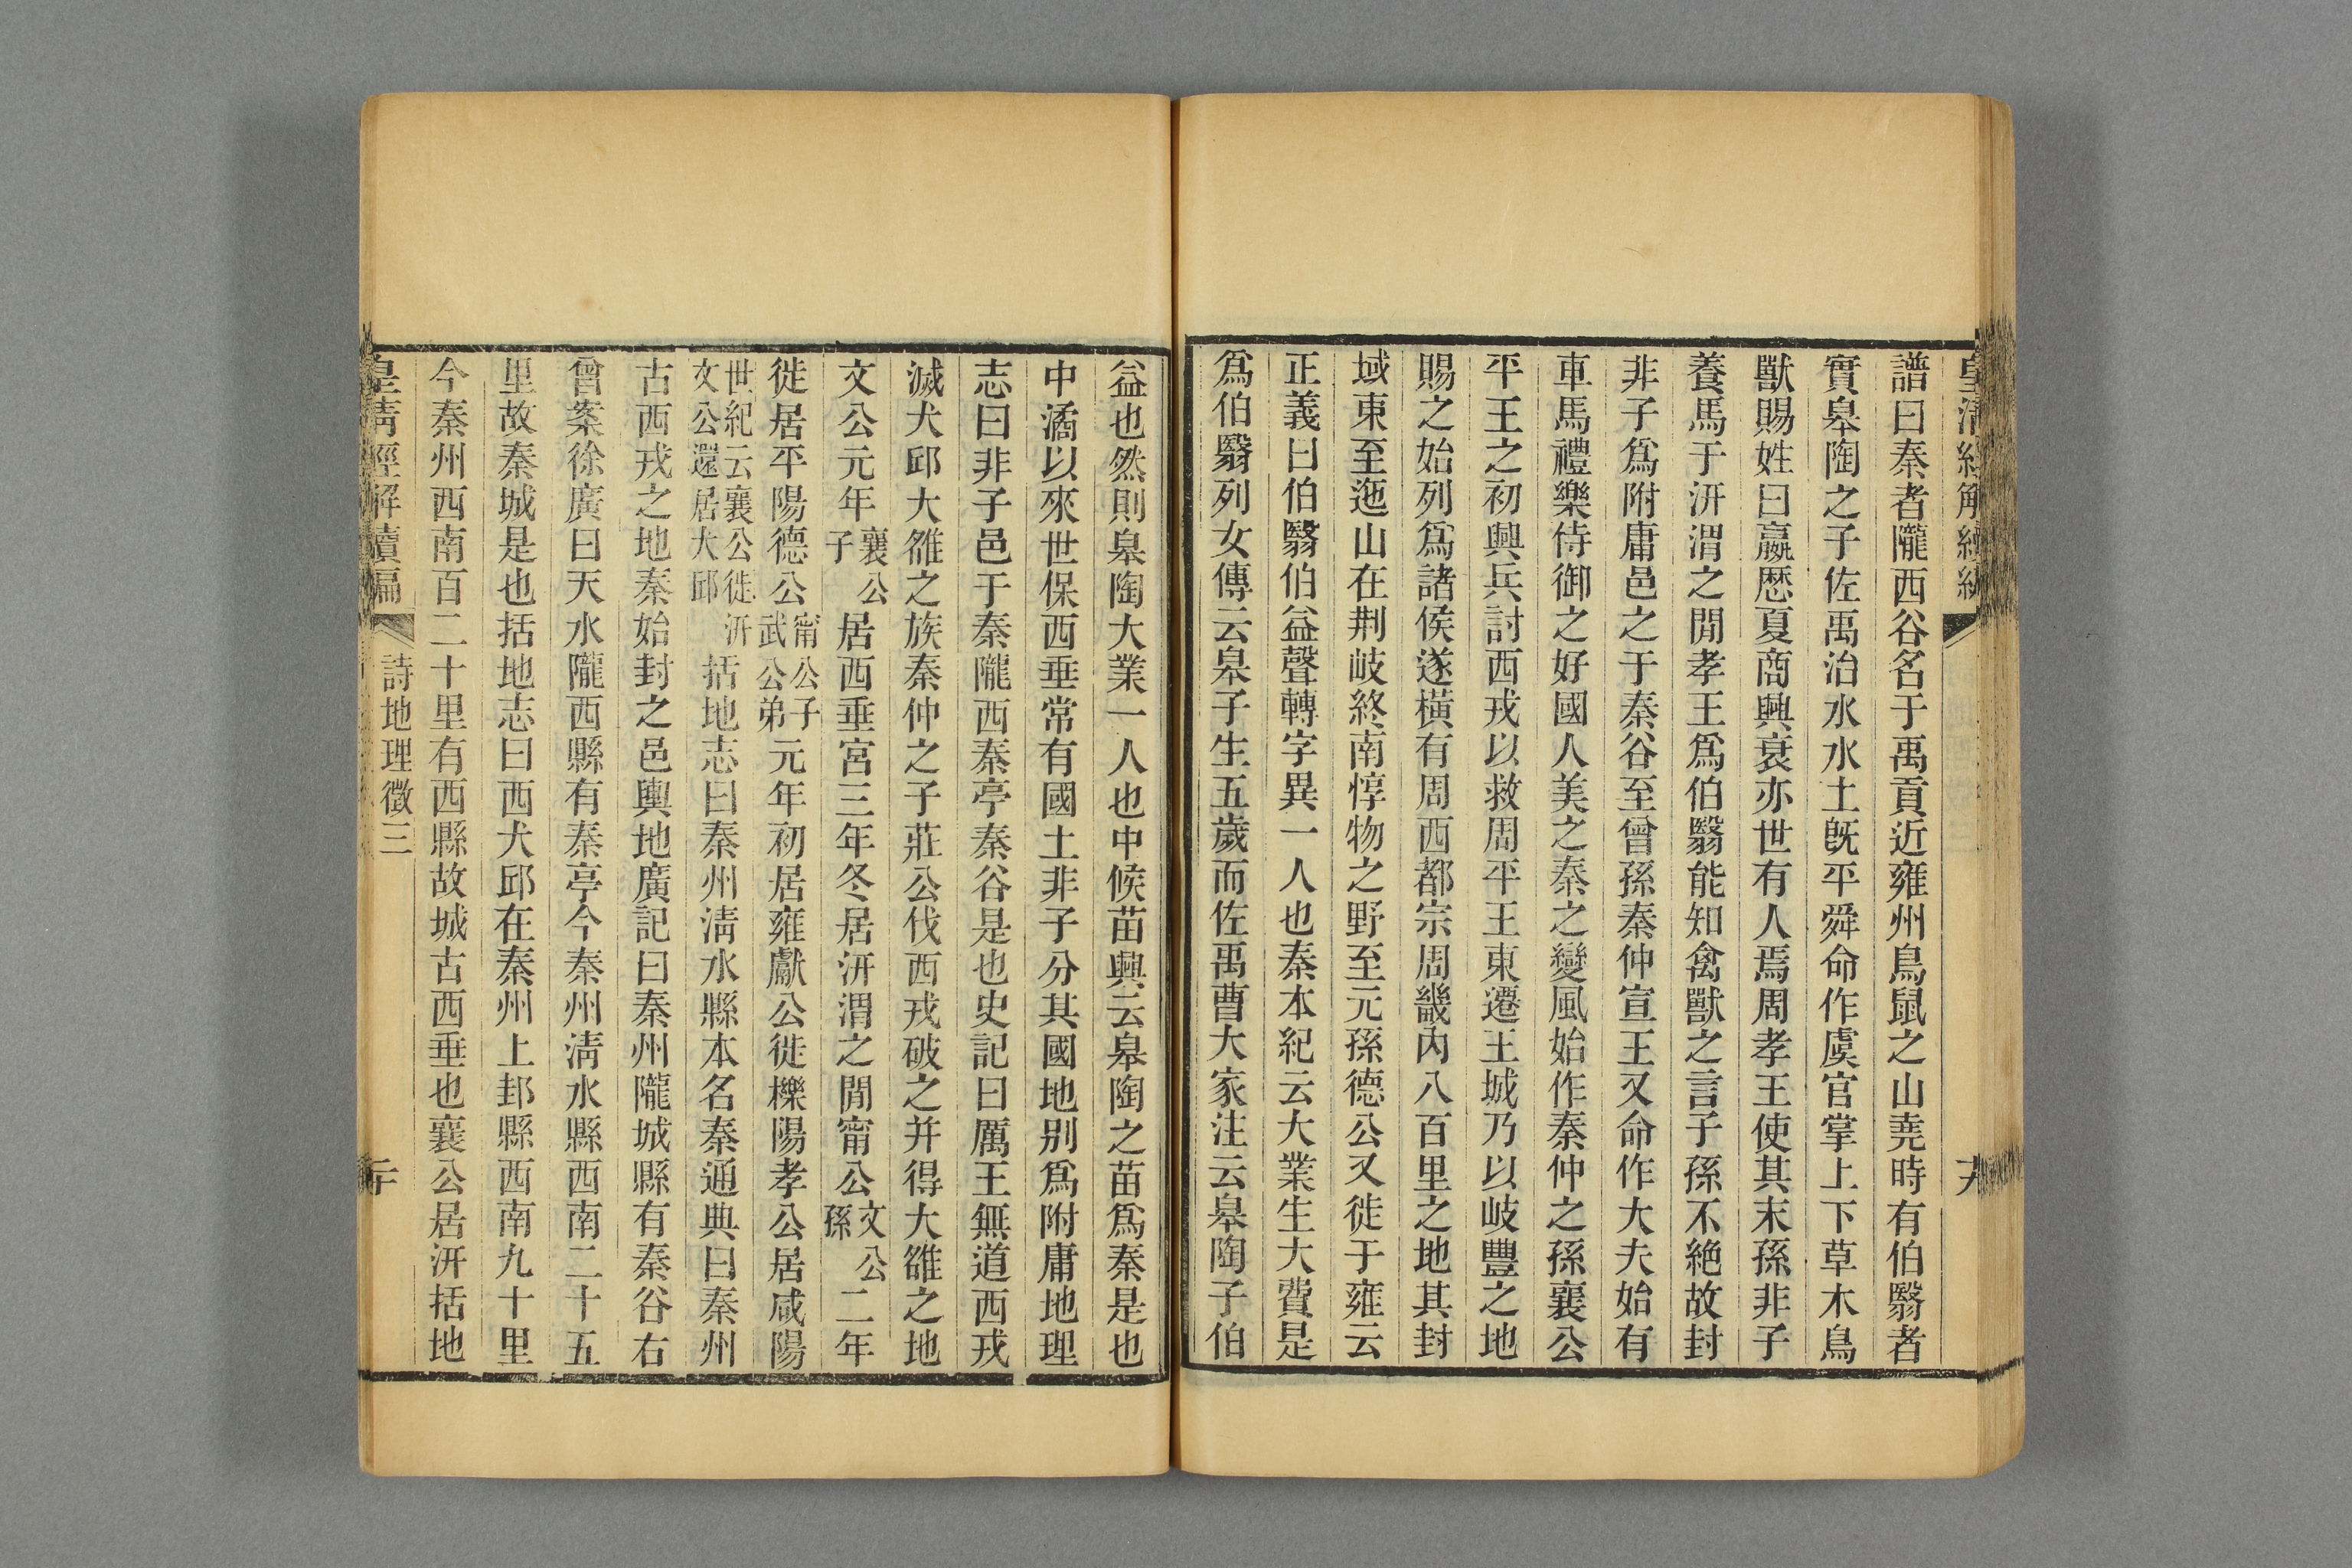 皇清經解續編
九
譜曰秦者隴西谷名于禹貢近雍州鳥鼠之山堯時有伯翳者
實皋陶之子佐禹治水水土旣平舜命作虞官掌上下草木鳥
獸賜姓曰嬴歷夏商興衰亦世有人焉周孝王使其末孫非子
養馬于汧渭之閒孝王爲伯翳能知禽獸之言子孫不絶故封
非子爲附庸邑之于秦谷至曾孫秦仲宣王又命作大夫始有
車馬禮樂侍御之好國人美之秦之變風始作秦仲之孫襄公
平王之初興兵討西戎以救周平王東遷王城乃以岐豐之地
賜之始列爲諸侯遂橫有周西都宗周畿內八百里之地其封
域東至迤山在荆岐終南惇物之野至元孫德公又徙于雍云
正義曰伯翳伯益聲轉字異一人也秦本紀云大業生大費是
爲伯翳列女傳云皋子生五歲而佐禹曹大家注云皋陶子伯
益也然則皋陶大業一人也中候苗興云皋陶之苗爲秦是也
中潏以來世保西垂常有國土非子分其國地别爲附庸地理
志曰非子邑于秦隴西秦亭秦谷是也史記曰厲王無道西戎
滅犬邱大雒之族秦仲之子莊公伐西戎破之并得大雒之地
文公元年襄公子居西垂宮三年冬居汧渭之閒甯公文公孫二年
徙居平陽德公甯公子武公弟元年初居雍獻公徙櫟陽孝公居咸陽
世紀云襄公徙汧文公還居犬邱括地志曰秦州淸水縣本名秦通典曰秦州
古西戎之地秦始封之邑輿地廣記曰秦州隴城縣有秦谷右
曾案徐廣曰天水隴西縣有秦亭今秦州淸水縣西南二十五
里故秦城是也括地志曰西犬邱在秦州上邽縣西南九十里
今秦州西南百二十里有西縣故城古西垂也襄公居汧括地
皇淸經解續編
詩地理徵三
二十